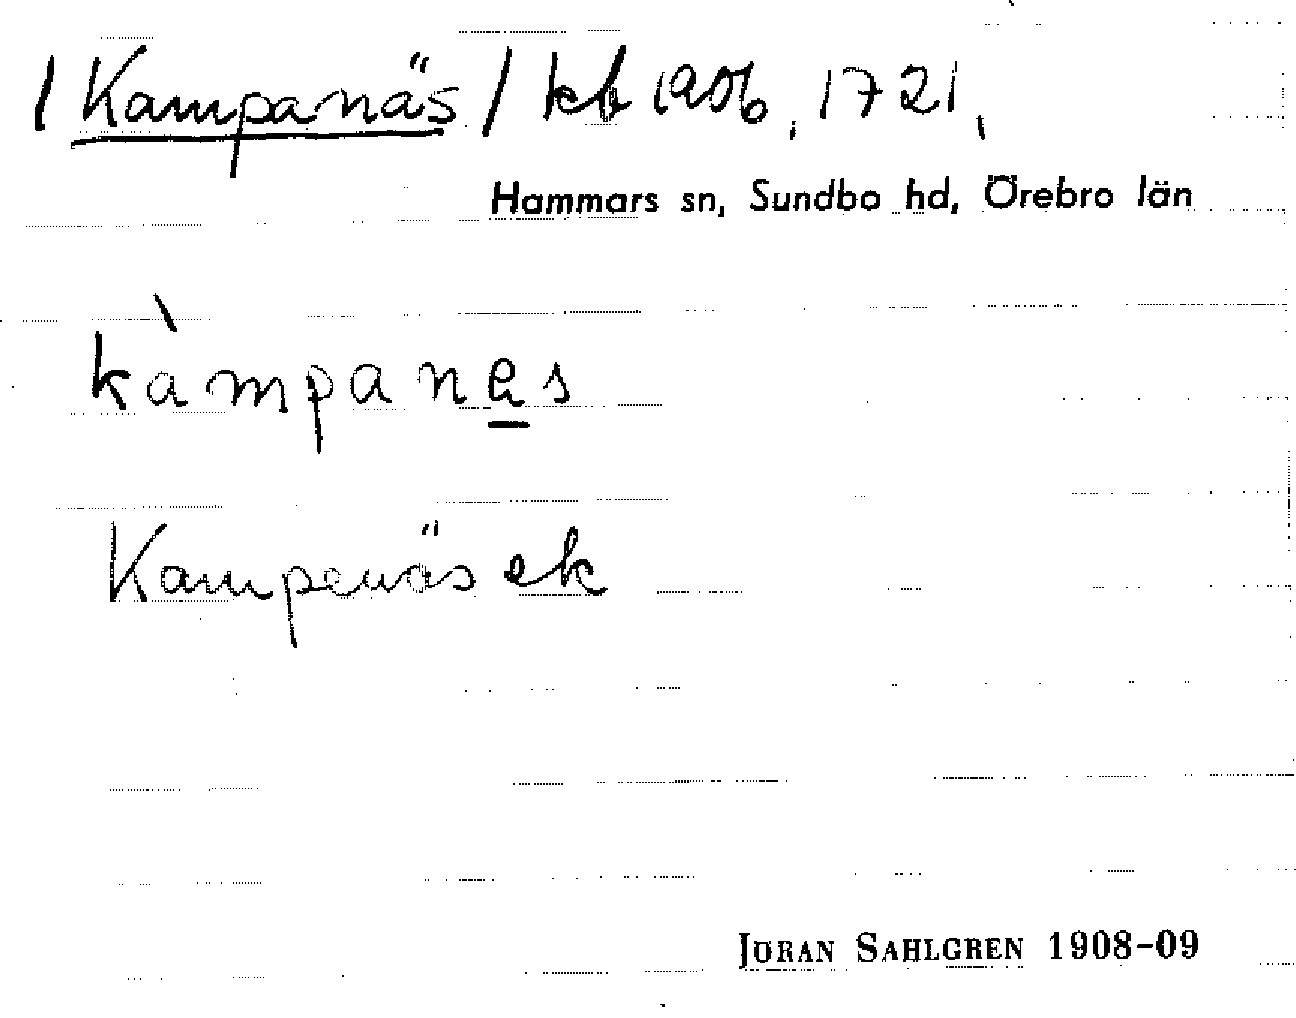 /Kampanäs/ kb 1906, 1721,
Hammars sn, Sundbo hd, Örebro län
kàmpanes
Kampenäs ek
JÖRAN SAHLGREN 1908-09